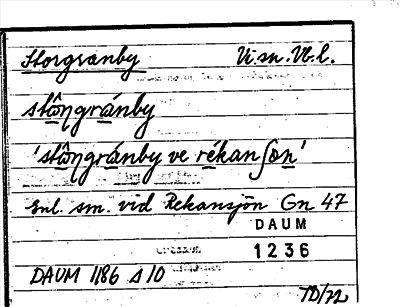 Storgranby Visn. Vb.l.
stôŋgránby
'stôŋgránby ve rékanʃøn'
Enl. sm. vid Rekansjön Gn 47
DAUM
1236
DAUM 1186 Δ 10